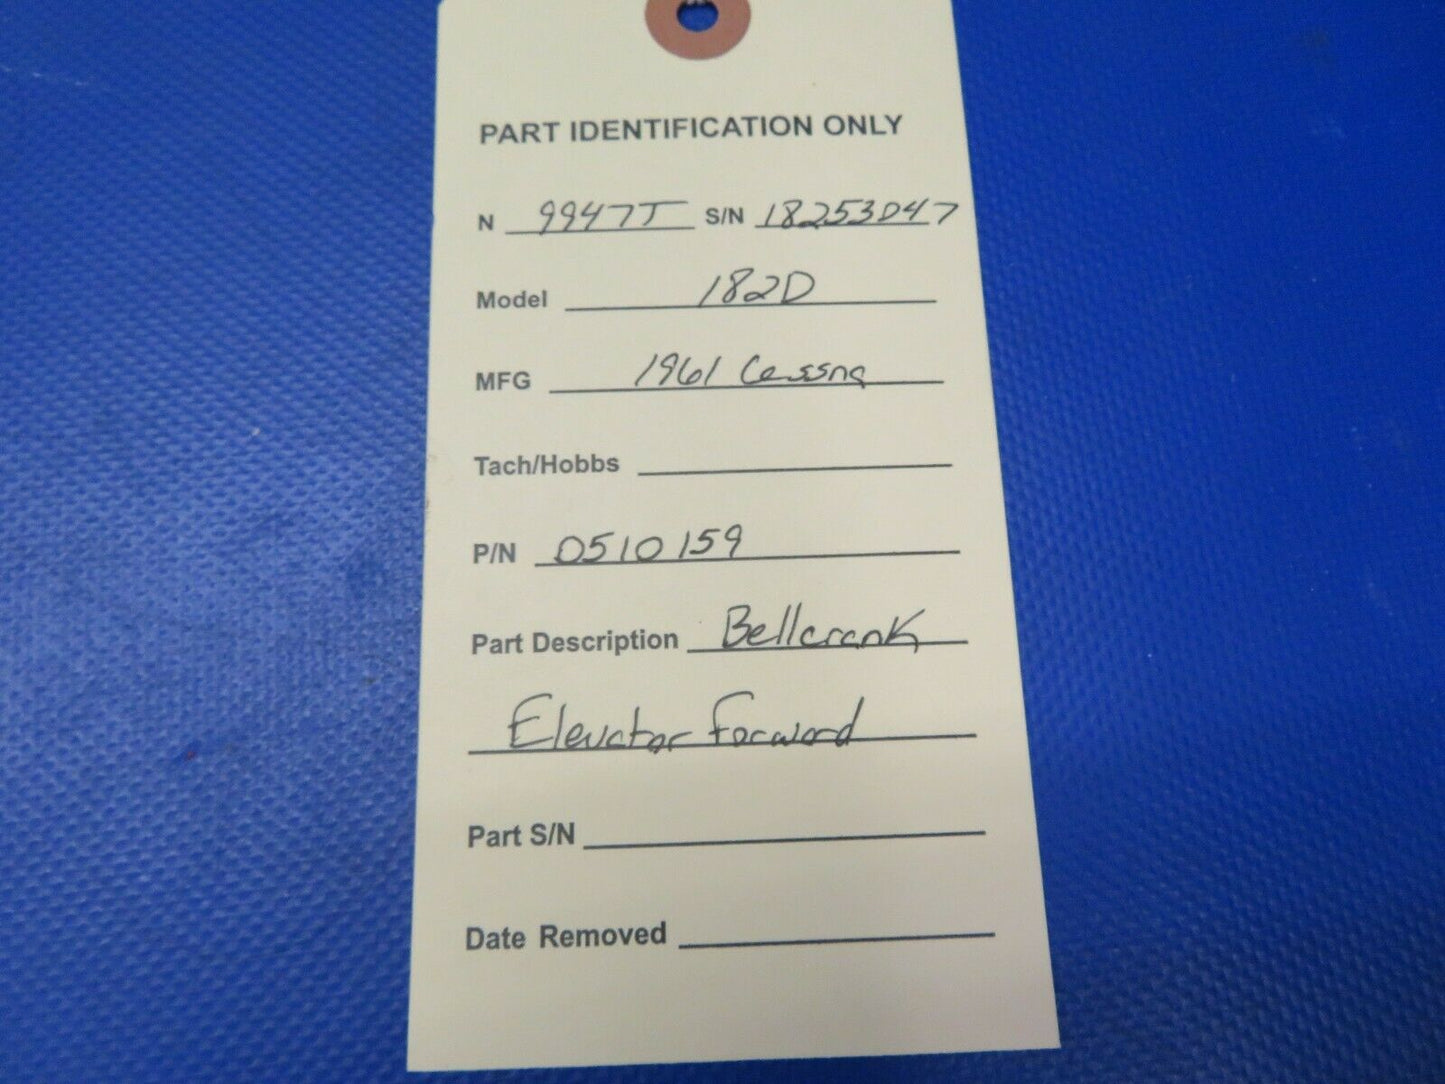 PART IDENTIFICATION ONLY
N 9947T S/N 18253047
Model 182D
MFG 1961 Cessna
Tach/Hobbs
P/N 0510159
Part Description Bellcrank
Elevator Forward
Part S/N
Date Removed